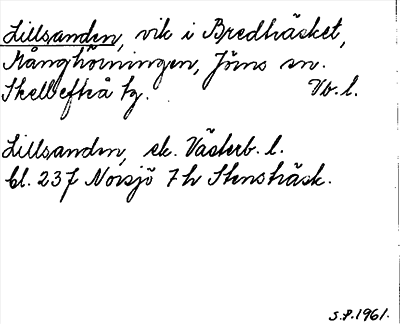 Lillsanden, vik i Bredträsket,
Månghörningen, Jörns sn.
Skellefteå tg. Vb. l.
Lillsanden, ek. Västerb. l.
bl. 237 Norsjö 7h Stensträsk.
S.P. 1961.